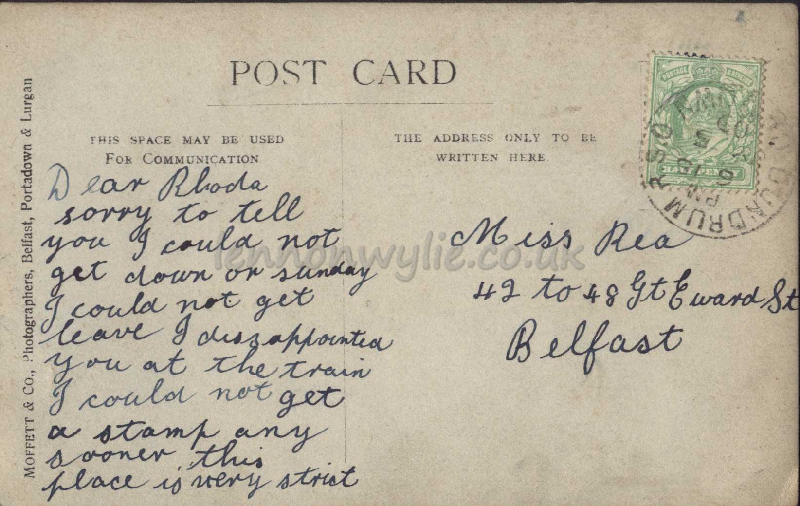 POST CARD
THIS SPACE MAY BE USED
FOR COMMUNICATION
THE ADDRESS ONLY TO BE
WRITTEN HERE.
MOFFETT & Co., Photographers, Belfast, Portadown & Lurgan
Dear Rhoda
sorry to tell
you I could not
get down on sunday
I could not get
leave I dissappointed
you at the train
I could not get
a stamp any
sooner this
place is very strict
Miss Rea
42 to 48 Gt Eward St
Belfast
POSTAGE
HALFPENNY
DUNDRUM R.S.O
lennonwylie.co.uk